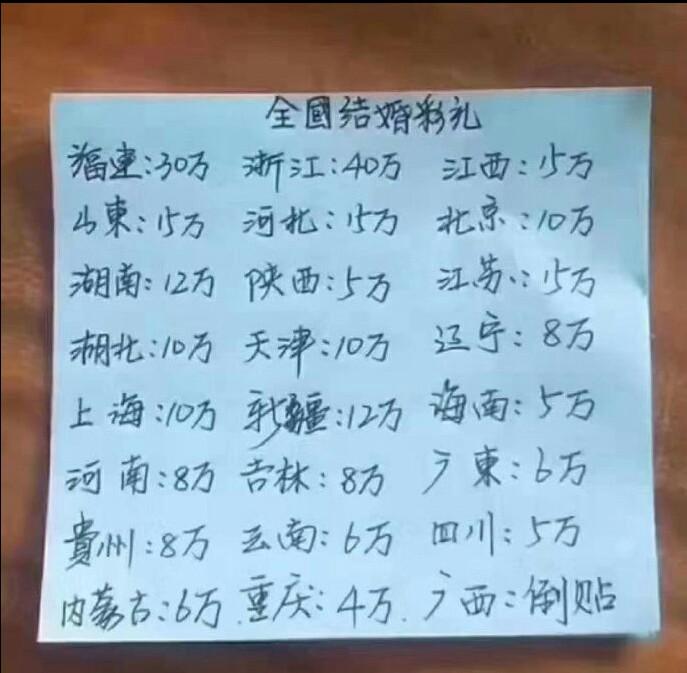 全國结婚彩礼
福建:30万 浙江:40万 江西:15万
山東:15万 河北:15万 北京:10万
湖南:12万 陕西:5万 江苏:15万
湖北:10万 天津:10万 辽宁:8万
上海:10万 新疆:12万 海南:5万
河南:8万 吉林:8万 广東:6万
貴州:8万 云南:6万 四川:5万
内蒙古:6万. 重庆:4万. 广西:倒贴